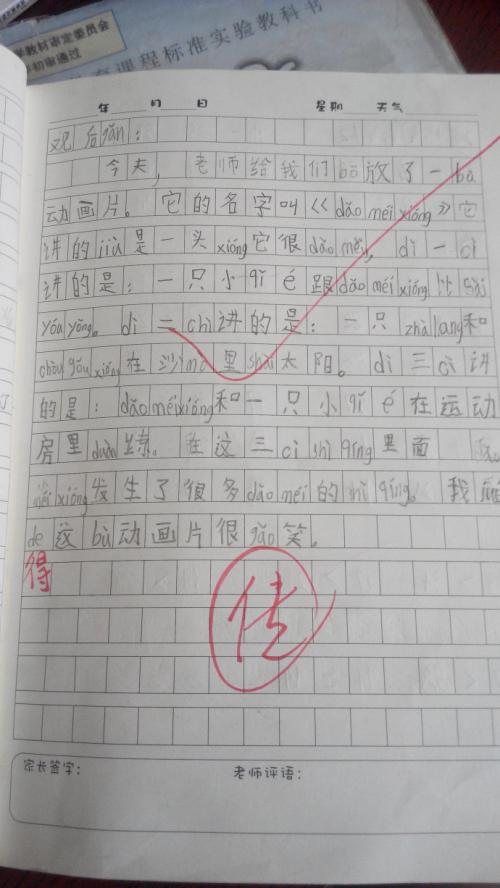 学教材审定委员会
初审通过
课程标准实验教科书
年 月 日 星期 天气
观后gǎn：
今天，老师给我们bō放了一bù
动画片。它的名字叫《dǎo méi xióng》它
讲的jiù是一头xióng它很dǎo méi，dì一cì
讲的是：一只小qǐ é跟dǎo méi xióng比sài
yóu yǒng。dì二chì讲的是：一只zhāláng和
chòu gǒu xióng在沙mò里shài太阳。dì三cì讲
的是：dǎo méi xióng和一只小qǐ é在运动
房里duàn练。在这三cì shì qíng里面
méi xióng发生了很多dǎo méi的shì qíng。我觉
de这bù动画片很gǎo笑。
得
佳
家长签字： 老师评语：